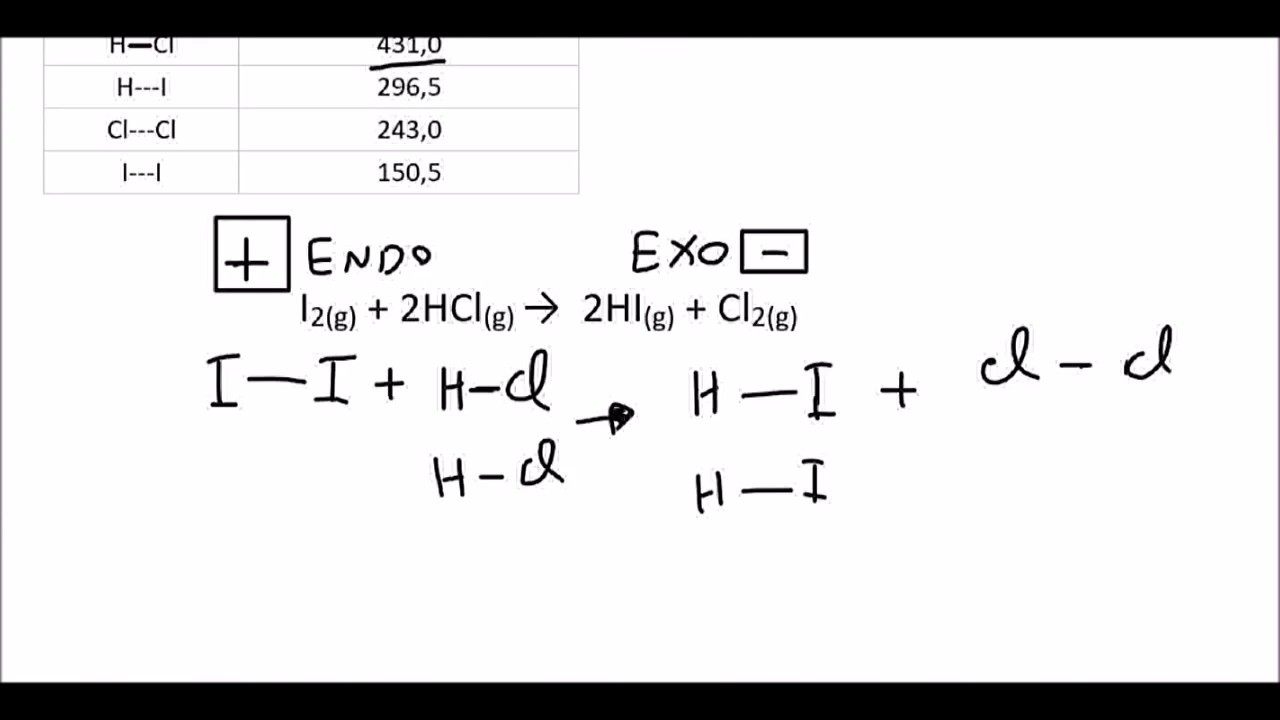 H—Cl 431,0
H---I 296,5
Cl---Cl 243,0
I---I 150,5
+ ENDO EXO -
I2(g) + 2HCl(g) → 2HI(g) + Cl2(g)
I—I + H-Cl → H—I + Cl-Cl
H-Cl H—I